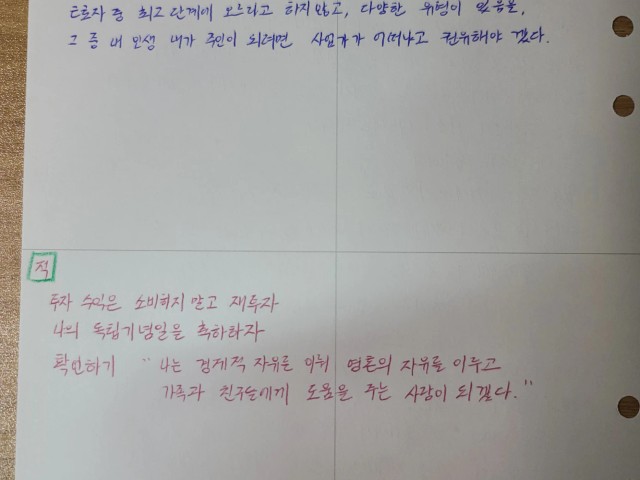 투자자 중 최고 단계에 오르라고 하지 않고, 다양한 유형이 있음을,
그 중 내 인생 내가 주인이 되려면 사업가가 어떠냐고 권유해야 겠다.
적
투자 수익은 소비하지 말고 재투자
나의 독립기념일을 축하하자
확언하기 "나는 경제적 자유를 이뤄 영혼의 자유를 이루고
가족과 친구들에게 도움을 주는 사람이 되겠다."